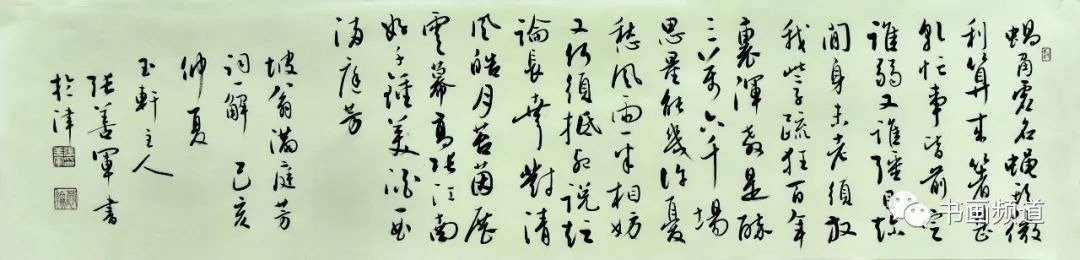 蝸角虛名蠅頭微
利算来著甚
乾忙事皆前定
誰弱又誰強且趁
閒身未老須放
我些子疏狂百年
裏渾教是醉
三萬六千場
思量能幾許憂
愁風雨一半相妨
又何須抵死說短
論長幸對清
風皓月苔茵展
雲幕高張江南
好千鍾美酒一曲
滿庭芳
坡翁滿庭芳
詞一解 己亥
仲夏
玉軒主人
張善軍書
於津
书画频道